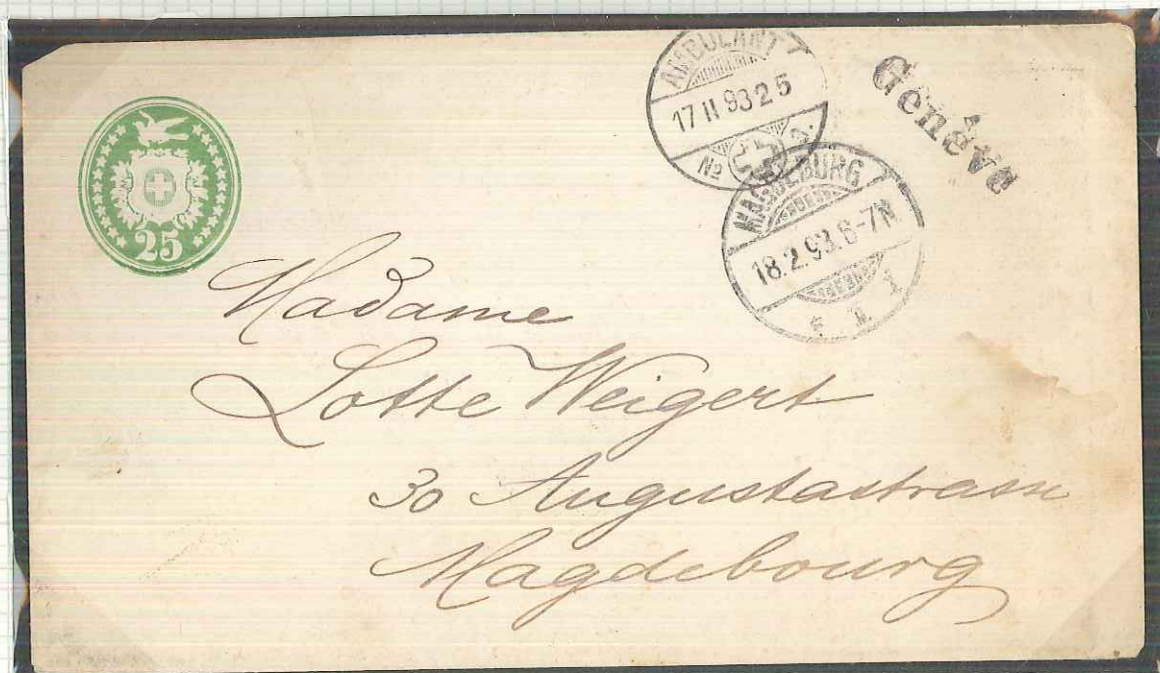 AMBULANT
17 II 93 25
No
Genève
MAGDEBURG
18.2.93.6-7N
1
25
Madame
Lotte Weigert
30 Augustastrasse
Magdebourg